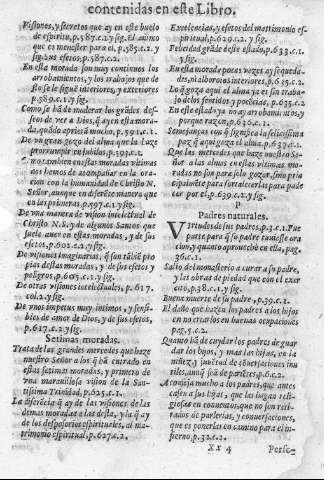 contenidas en este Libro.
Visiones, y secretos que ay en este buelo
de espiritu, p.587.c.2.y sig. El animo
que es menester para el, p.585.c.2. y
sig. sus efetos, p.587.c.2.
En esta morada son muy continuos los
arrobamientos, y los trabajos que de
esto se le sigue interiores, y exteriores
p.589.c.1.y sig.
Como se ha de moderar los grādes des-
seos de ver a Dios, q̄ ay en esta mora-
da, quādo aprieta mucho, p.591.c.1.
De vn gran gozo del alma que la haze
prorrumpir en jubilos, p.593.c.1.
Como tambien en estas moradas vltimas
nos hemos de acompañar en la ora-
cion con la humanidad de Christo N.
Señor, aunque en diferēte manera que
en las primeras. p.597.c.1.y sig.
De vna manera de vision intelectual de
Christo N.S. y de algunos Santos que
suele auer en estas moradas, y de sus
efetos, p.601.c.2.y sig.
De visiones imaginarias, q̄ son tābiē pro
pias destas moradas, y de sus efetos y
peligros, p.605.c.1.y sig.
De otras visiones intelectuales, p.617.
col.2.y sig.
De vnos impetus muy intimos, y sensi-
bles de amor de Dios, y de sus efetos,
p.617.c.2.y sig.
Setimas moradas.
Trata de las grandes mercedes que haze
nuestro Señor a los q̄ hā entrado en
estas setimas moradas, y primero de
vna marauillosa vision de la San-
tissima Trinidad, p.625.c.1.
La diferēcia q̄ ay de las visiones de las
demas moradas a las desta, y la q̄ ay
de los desposorios espirituales, al ma-
trimonio espiritual, p.627.c.2.
Excelencias, y efetos del matrimonio es
piritual, p.629.c.2.y sig.
Felicidad grāde deste estado, p.633.c.1.
y sig.
En esta morada pocas vezes ay sequeda-
des, ni alborotos interiores, p.635.c.2
Lo q̄ goza aqui el alma ya es sin traba-
jo de los sentidos y potēcias, p.635.c.2
En este estado ya no ay arrobamiētos, y
porque razon, p.636.c.1.
Semejanças con q̄ significa la felicissima
paz q̄ aqui goza el alma, p.637.c.1.
Que las mercedes que haze nuestro Se-
ñor a las almas en estas vltimas mo-
radas no son para solo gozar, sino prin
cipalmēte para fortalecerlas para pade
cer por el, p.639.c.1.y sig.
P
Padres naturales.
Virtudes de sus padres, p.3.c.1. Fue
parte para q̄ su padre tuuiesse ora
cion, y quanto aprouechò en ella, pag.
36.c.1.
Salio del monasterio a curar a su padre,
y las obras de piedad que con el exer
citò, p.38.c.1.y sig.
Buena muerte de su padre, p.39.c.1.
El daño que hazen los padres a los hijos
en no criarlos en buenas ocupaciones
pag.5.c.2.
Quanto hā de cuydar los padres de guar
dar los hijos, y mas las hijas, en la
niñez, y juuētud de cōuersaciones inu
tiles, aunq̄ seā de pariētes, p.6.c.2.
Aconseja mucho a los padres, que antes
casen a sus hijas, que las hagan reli-
giosas en conuentos, que no son reti-
rados de parlerias, y conuersaciones,
que es ponerlas en camino para el in-
fierno, p.32.c.2.
Xx 4
Perse-